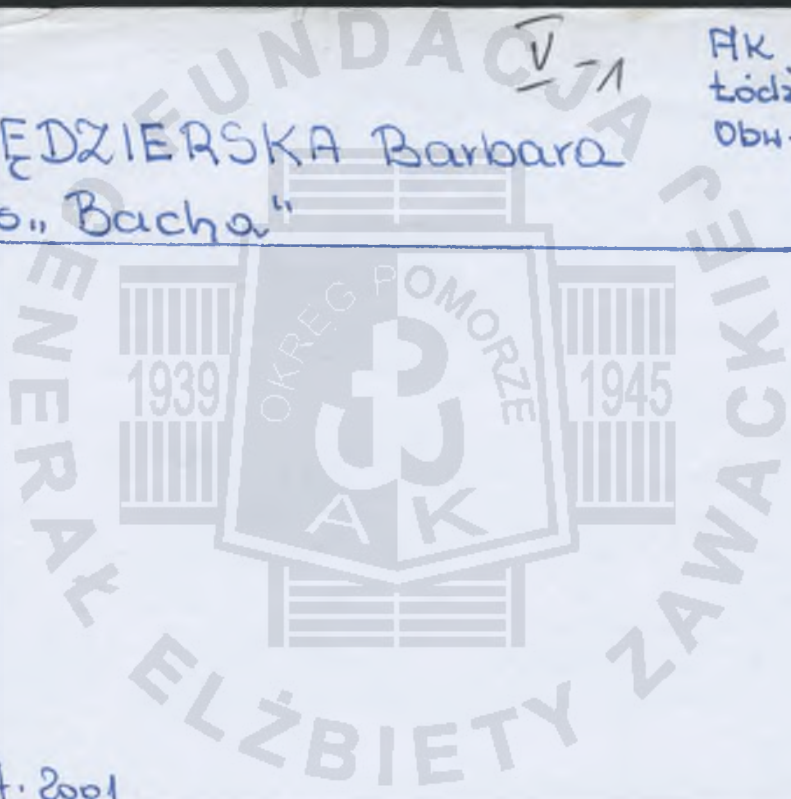 V-1
AK
Łódź
Obw.
ĘDZIERSKA Barbara
ps. „Bacha"
FUNDACJA GENERAŁ ELŻBIETY ZAWACKIEJ
OKRĘG POMORZE
1939
1945
AK
. 2001